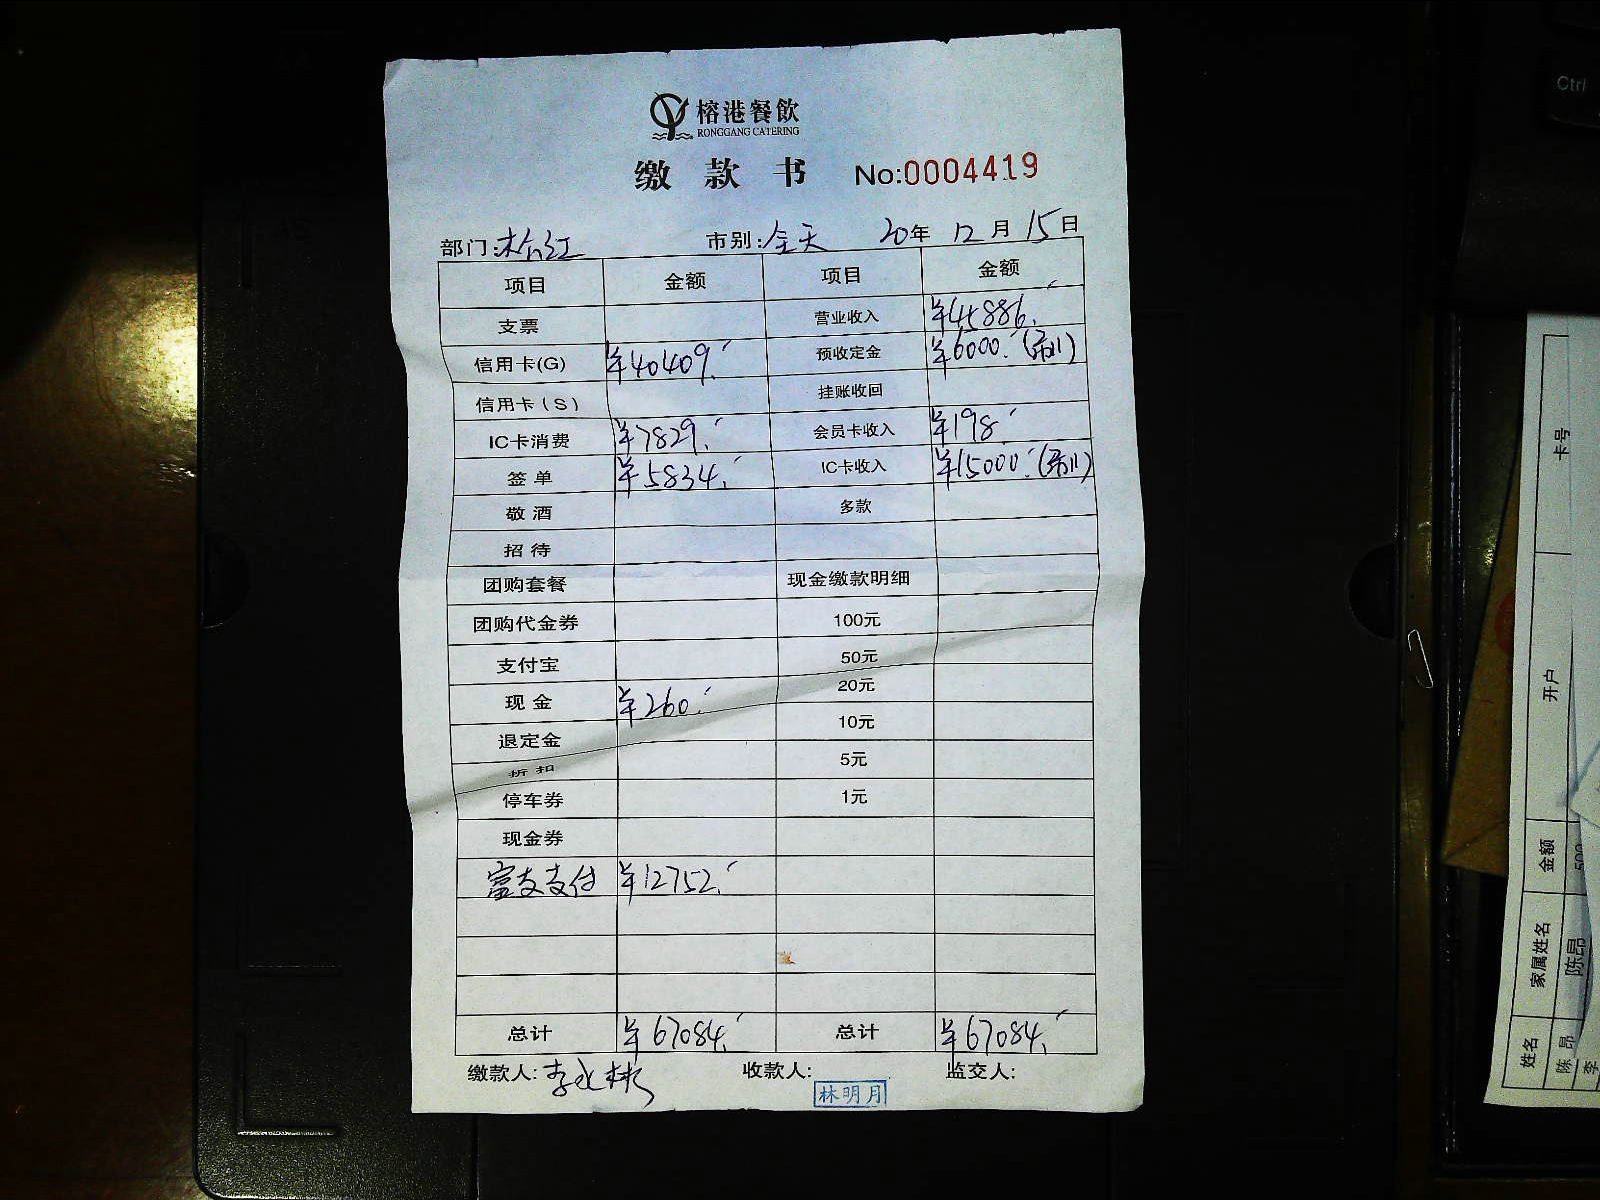 榕港餐飲
RONGGANG CATERING
缴款书 No:0004419
部门: 市别:全天 20年12月15日
项目 金额 项目 金额
支票 营业收入 ¥45886.
信用卡(G) ¥40409. 预收定金 ¥6000.
信用卡(S) 挂账收回
IC卡消费 ¥7829. 会员卡收入 ¥198
签单 ¥5834. IC卡收入 ¥15000.
敬酒 多款
招待
团购套餐 现金缴款明细
团购代金券 100元
支付宝 50元
现金 ¥260. 20元
退定金 10元
折扣 5元
停车券 1元
现金券
富友支付 ¥12752.
总计 ¥67084. 总计 ¥67084.
缴款人: 收款人: 监交人:
林明月
Ctrl
卡号
开户
金额
500
家属姓名
陈昂
姓名
陈昂
李